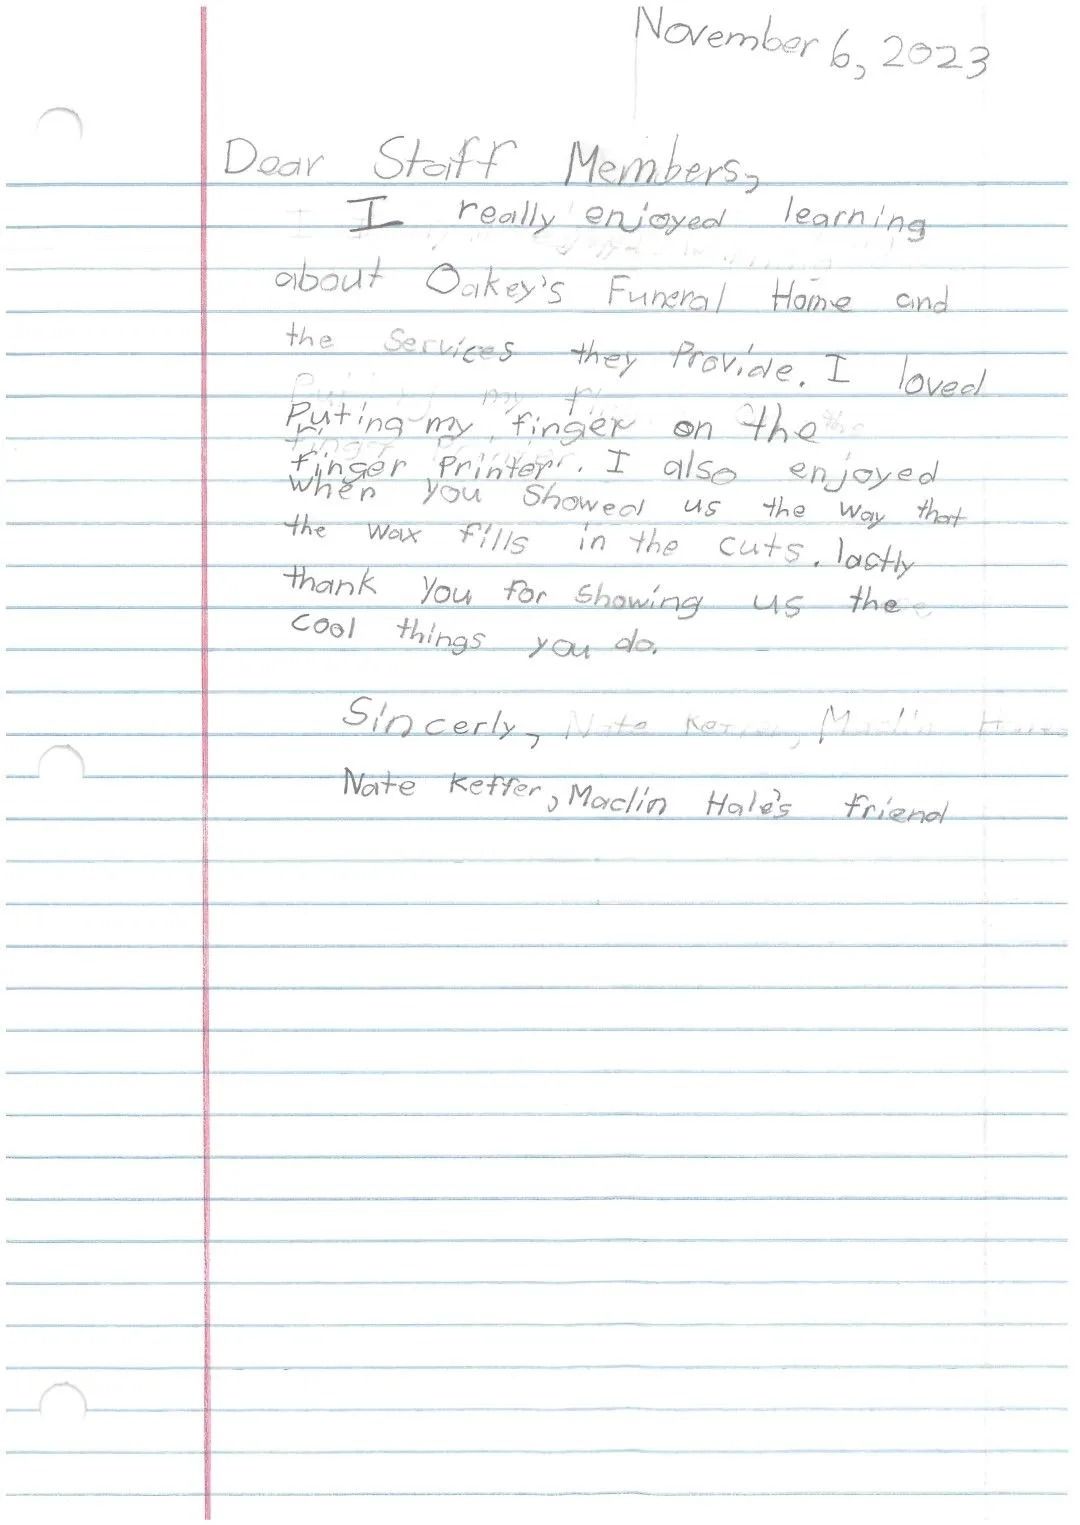 November 6, 2023
Dear Staff Members,
I really enjoyed learning
about Oakey's Funeral Home and
the services they Provide. I loved
Puting my finger on the
finger Printer. I also enjoyed
when you showed us the way that
the wax fills in the cuts. lastly
thank you for showing us the
cool things you do.
Sincerly, Nate Keffer, Maclin
Nate Keffer, Maclin Hale's friend